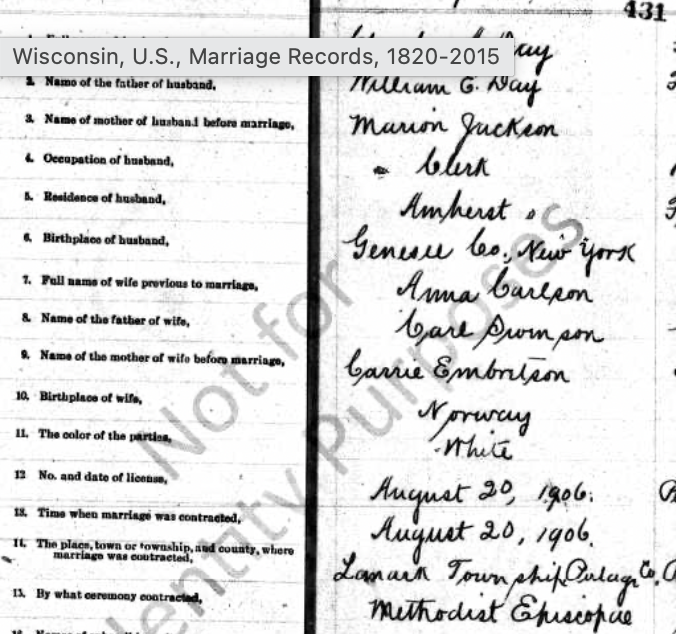 431
Wisconsin, U.S., Marriage Records, 1820-2015
Day
2. Name of the father of husband, William E. Day
3. Name of mother of husband before marriage, Marion Jackson
4. Occupation of husband, Clerk
5. Residence of husband, Amherst
6. Birthplace of husband, Genesee Co., New York
7. Full name of wife previous to marriage, Anna Carlson
8. Name of the father of wife, Carl
9. Name of the mother of wife before marriage, Carrie Embritson
10. Birthplace of wife, Norway
11. The color of the parties, White
12 No. and date of license, August 20, 1906.
13. Time when marriage was contracted, August 20, 1906.
14. The place, town or township, and county, where
marriage was contracted, Lanark Township, Portage Co.
15. By what ceremony contracted, Methodist Episcopal
Not for
Identity Purposes